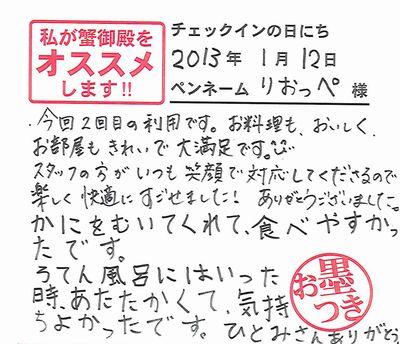 私が蟹御殿を
オススメ
します!!
チェックインの日にち
2013年 1月 12日
ペンネーム りおっぺ 様
・今回2回目の利用です。お料理も、おいしく、
お部屋もきれいで大満足です。
スタッフの方がいつも笑顔で対応してくださるので
楽しく快適にすごせました! ありがとうございました。
かにをむいてくれて、食べやすかっ
たです。
ろてん風呂にはいった
時、あたたかくて、気持
ちよかったです。ひとみさんありがとう。
お墨
つき